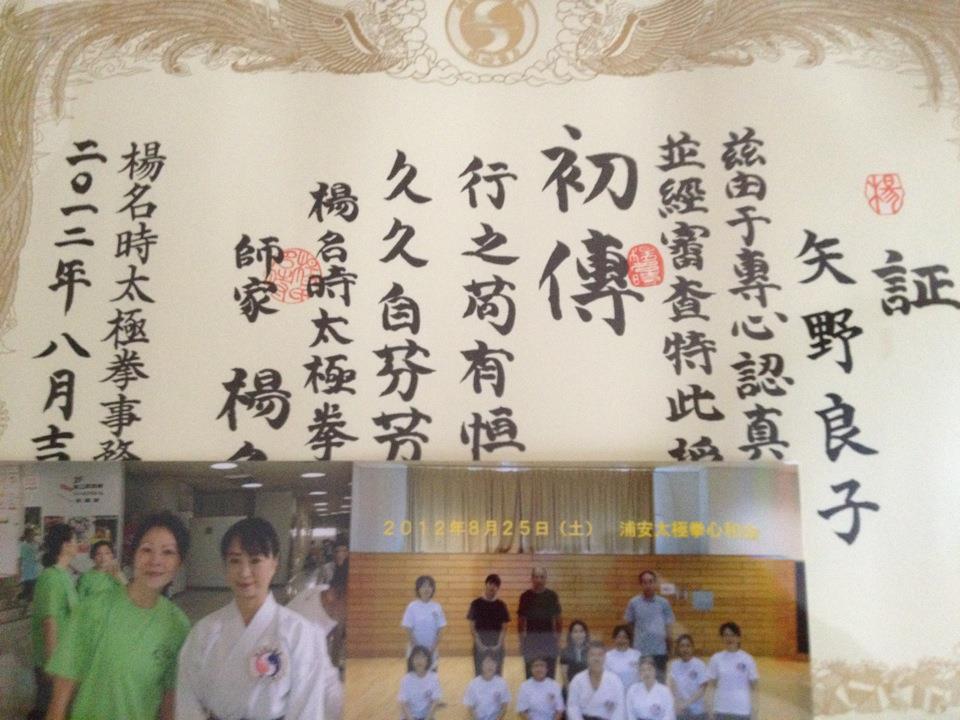 楊
証
矢野良子
茲由于專心認真
並經審査特此授
初傳
行之苟有恒
久久自芬芳
楊名時太極拳
師家 楊名
楊名時太極拳事務
二〇一二年八月吉
2012年8月25日（土） 浦安太極拳心和会